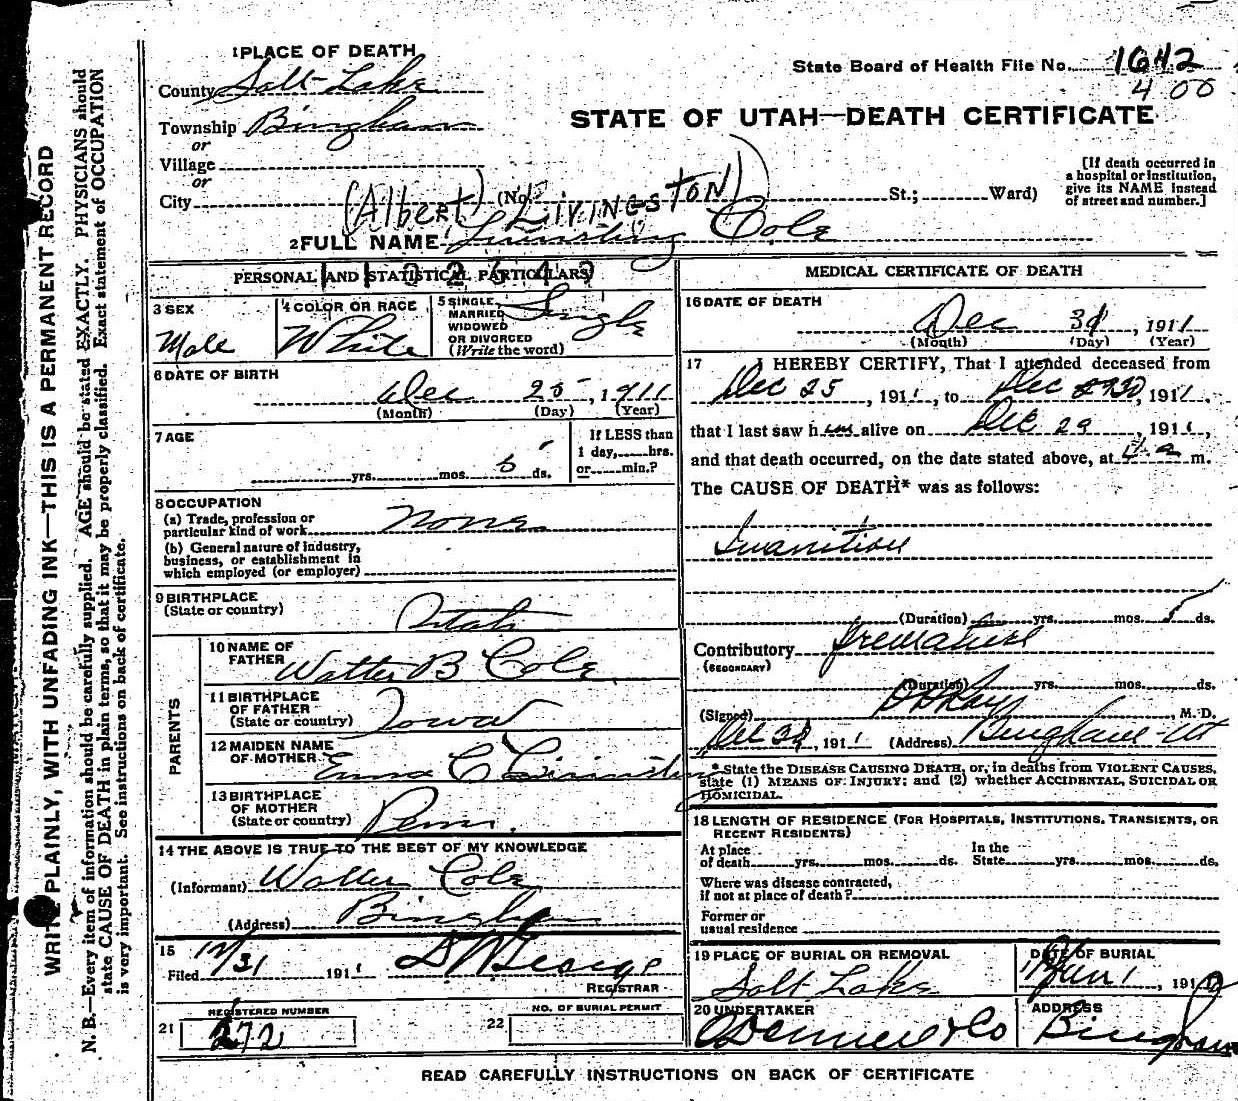 WRITE PLAINLY, WITH UNFADING INK—THIS IS A PERMANENT RECORD
N. B.—Every item of information should be carefully supplied. AGE should be stated EXACTLY. PHYSICIANS should
state CAUSE OF DEATH in plain terms, so that it may be properly classified. Exact statement of OCCUPATION
is very important. See instructions on back of certificate.
1 PLACE OF DEATH
County Salt Lake
Township Bingham
or
Village
or
City (No. St.; Ward)
State Board of Health File No. 1642
400
STATE OF UTAH—DEATH CERTIFICATE
[If death occurred in
a hospital or institution,
give its NAME instead
of street and number.]
(Albert) LIVINGSTON)
2 FULL NAME Cole
PERSONAL AND STATISTICAL PARTICULARS
3 SEX
Male
4 COLOR OR RACE
White
5 SINGLE
MARRIED
WIDOWED
OR DIVORCED
(Write the word)
Single
6 DATE OF BIRTH
Dec 25, 1911
(Month) (Day) (Year)
7 AGE
yrs. mos. 5 ds.
If LESS than
1 day, hrs.
or min.?
8 OCCUPATION
(a) Trade, profession or
particular kind of work None
(b) General nature of industry,
business, or establishment in
which employed (or employer)
9 BIRTHPLACE
(State or country) Utah
PARENTS
10 NAME OF
FATHER Walter B Cole
11 BIRTHPLACE
OF FATHER
(State or country) Iowa
12 MAIDEN NAME
OF MOTHER Emma C
13 BIRTHPLACE
OF MOTHER
(State or country) Penn.
14 THE ABOVE IS TRUE TO THE BEST OF MY KNOWLEDGE
(Informant) Walter Cole
(Address) Bingham
15
Filed 12/31 1911
REGISTRAR
REGISTERED NUMBER
21 272
NO. OF BURIAL PERMIT
22
MEDICAL CERTIFICATE OF DEATH
16 DATE OF DEATH
Dec , 1911
(Month) (Day) (Year)
17 I HEREBY CERTIFY, That I attended deceased from
Dec 25, 1911, to Dec , 1911,
that I last saw h alive on Dec 29, 1911,
and that death occurred, on the date stated above, at 4 a m.
The CAUSE OF DEATH* was as follows:
Inanition
(Duration) yrs. mos. 5 ds.
Contributory Premature
(SECONDARY)
(Duration) yrs. mos. ds.
(Signed) , M. D.
Dec , 1911 (Address) Bingham Ut
* State the DISEASE CAUSING DEATH, or, in deaths from VIOLENT CAUSES,
state (1) MEANS OF INJURY; and (2) whether ACCIDENTAL, SUICIDAL OR
HOMICIDAL.
18 LENGTH OF RESIDENCE (FOR HOSPITALS, INSTITUTIONS, TRANSIENTS, OR
RECENT RESIDENTS)
At place
of death yrs. mos. ds.
In the
State yrs. mos. ds.
Where was disease contracted,
if not at place of death?
Former or
usual residence
19 PLACE OF BURIAL OR REMOVAL
Salt Lake
DATE OF BURIAL
Jan 1, 191
20 UNDERTAKER
ADDRESS
Bingham
READ CAREFULLY INSTRUCTIONS ON BACK OF CERTIFICATE